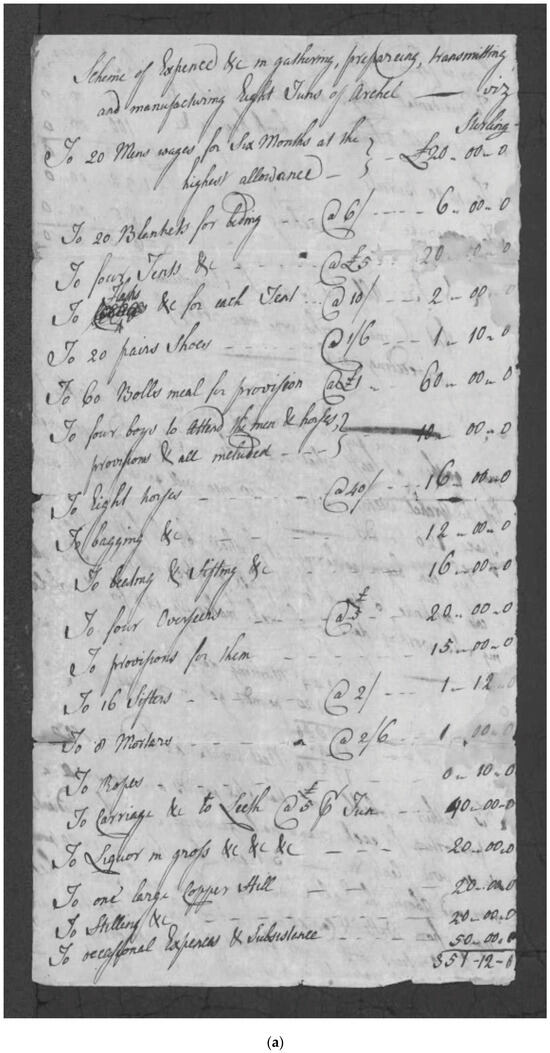 Scheme of Expence &c in gathering, prepareing, transmitting
and manufacturing Eight Tuns of Archel — viz
Sterling
To 20 Mens wages for Six Months at the
highest allowance — } £20..00..0
To 20 Blankets for beding @ 6/ 6..00..0
To four Tents &c @ £5 20..00..0
To &c for each Tent @ 10/ 2..00..0
To 20 pairs Shoes @ 1/6 1..10..0
To 60 Bolls meal for provision @ £1 60..00..0
To four boys to attend the men & horses,
provisions & all included } 10..00..0
To Eight horses @ 40/ 16..00..0
To bagging &c 12..00..0
To beating & Sifting &c 16..00..0
To four Overseers @ £5 20..00..0
To provisions for them 15..00..0
To 16 Sifters @ 2/ 1..12..0
To 8 Mortars @ 2/6 1..00..0
To Ropes 0..10..0
To Carriage &c to Leith @ £5 ₱ Tun 40..00..0
To Liquor in gross &c &c &c 20..00..0
To one large Copper Still 20..00..0
To Stilling &c 20..00..0
To occasional Expences & Subsistence 50..00..0
351-12-0
(a)